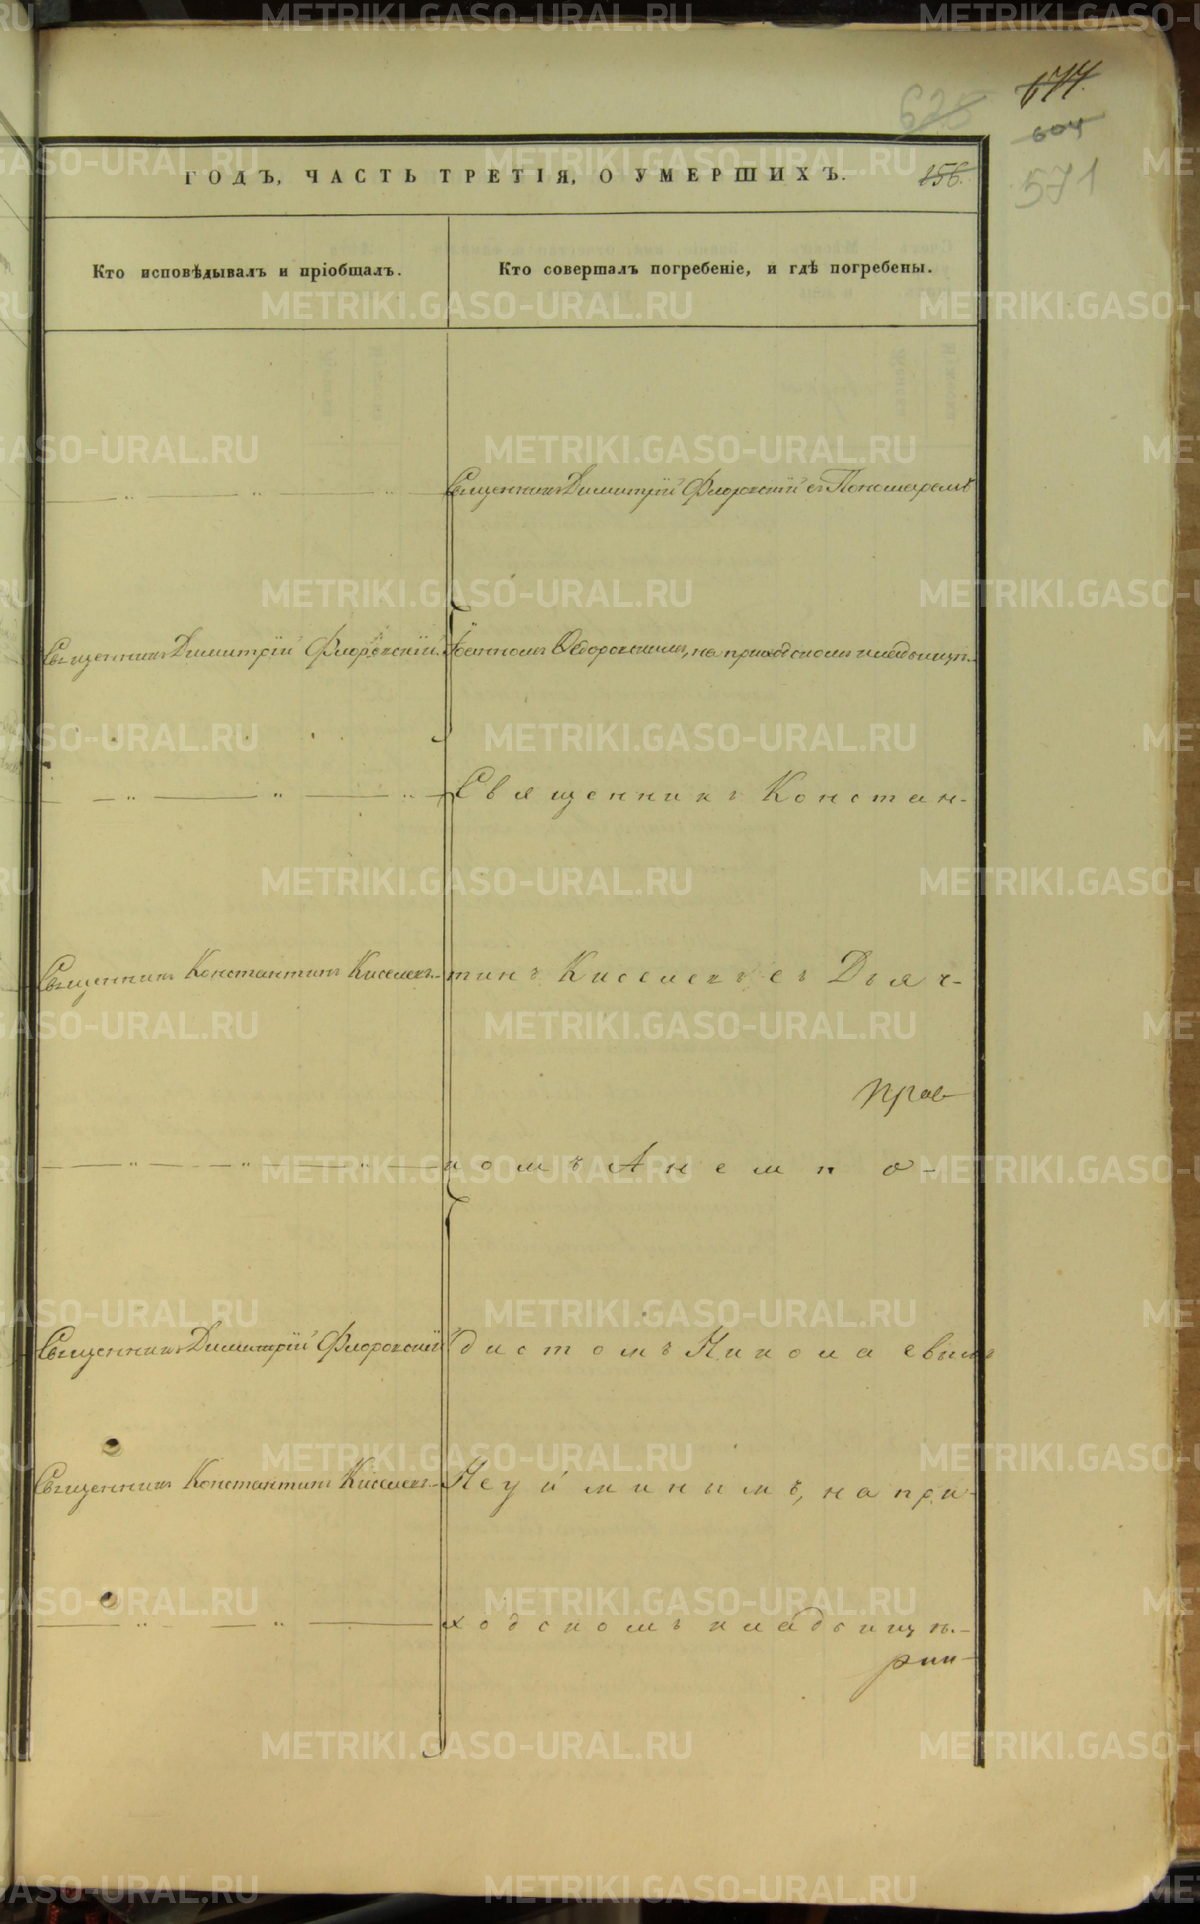 677.
625
604
571
ГОДЪ, ЧАСТЬ ТРЕТІЯ, О УМЕРШИХЪ.
156.
Кто исповѣдывалъ и пріобщалъ.
Кто совершалъ погребеніе, и гдѣ погребены.
— „ — „ — „ — Священникъ Димитрій Флоровскій съ Пономаремъ
Священникъ Димитрій Флоровскій.
Іоанномъ Ѳедоровскимъ, на приходскомъ кладбищѣ.
— „ — „ — „ — Священникъ Констан-
Священникъ Константинъ Киселевъ. тинъ Киселевъ съ Дьяч-
— „ — „ — „ — комъ Анемпо-
Священникъ Димитрій Флоровскій
дистомъ Николаевымъ
Священникъ Константинъ Киселевъ.
Неуйминымъ, на при-
— „ — „ — ходскомъ кладбищѣ.
METRIKI.GASO-URAL.RU